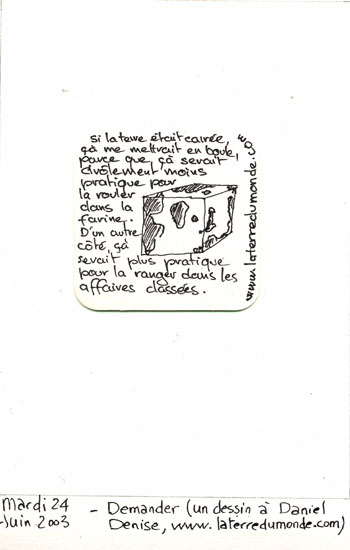 si la terre était carrée,
çà me mettrait en boule,
parce que, çà serait
drôlement moins
pratique pour
la rouler
dans la
farine.
D'un autre
côté, çà
serait plus pratique
pour la ranger dans les
affaires classées.
www.laterredumonde.com
Mardi 24
Juin 2003
- Demander (un dessin à Daniel
Denise, www.laterredumonde.com)